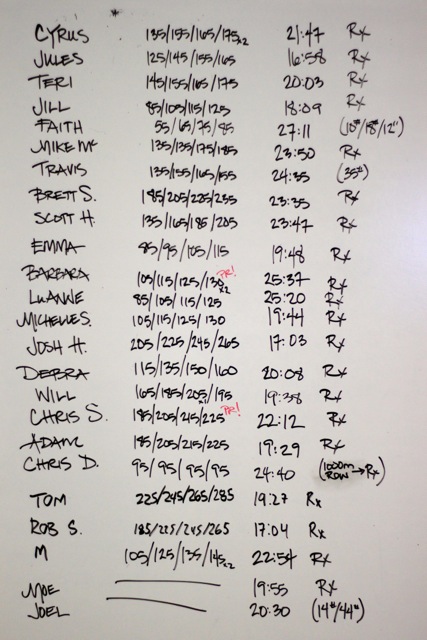 CYRUS 135/155/165/175x2 21:47 Rx
JULES 125/145/155/165 16:58 Rx
TERI 145/155/165/175 20:03 Rx
JILL 85/105/115/125 18:09 Rx
FAITH 55/65/75/85 27:11 (10#/18#/12")
MIKE Mc 135/135/175/185 23:50 Rx
TRAVIS 135/155/165/155 24:35 (35#)
BRETT S. 185/205/225/235 23:35 Rx
SCOTT H. 135/165/185/205 23:47 Rx
EMMA 85/95/105/115 19:48 Rx
BARBARA 105/115/125/130x2 PR! 25:37 Rx
LUANNE 85/105/115/125 25:20 Rx
MICHELLE S. 105/115/125/130 19:44 Rx
JOSH H. 205/225/245/265 17:03 Rx
DEBRA 115/135/150/160 20:08 Rx
WILL 165/185/205x1/195 19:38 Rx
CHRIS S. 185/205/215/225 PR! 22:12 Rx
ADAM 185/205/215/225 19:29 Rx
CHRIS D. 95/95/95/95 24:40 (1000m ROW → Rx)
TOM 225/245/265/285 19:27 Rx
ROB S. 185/225/245/265 17:04 Rx
M 105/125/135/145x2 22:54 Rx
MOE 19:55 Rx
JOEL 20:30 (14"/44#)